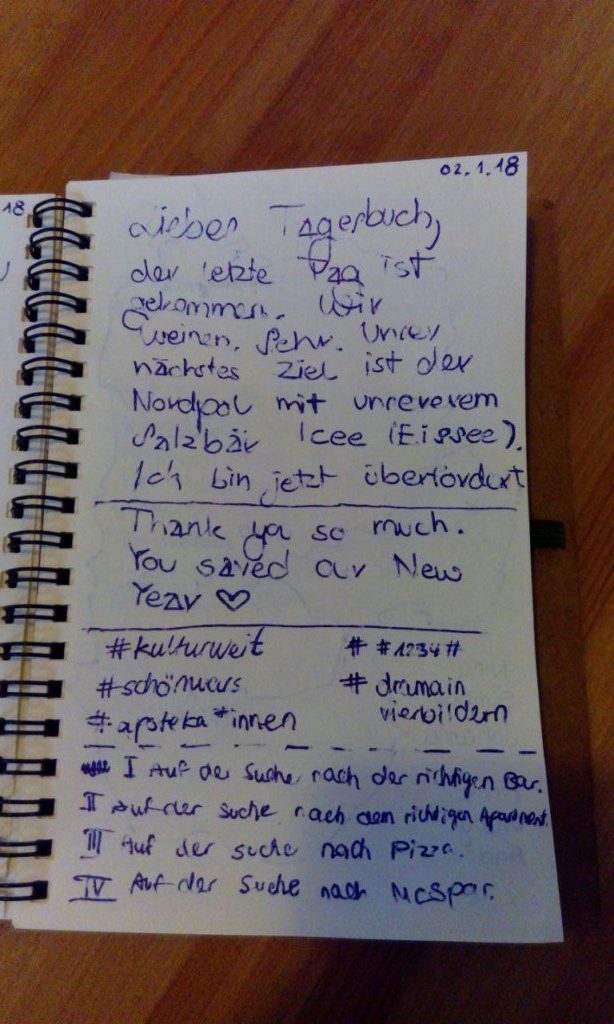 18
02.1.18
Lieber Tagerbuch,
der letzte Tag ist
gekommen. Wir
weinen. Sehr. Unser
nächstes Ziel ist der
Nordpol mit unrererem
Salzbär Icee (Eissee).
Ich bin jetzt überfordert
Thank ya so much.
You saved our New
Year ♡
#kulturweit # #1234#
#schönwars # dramain
#apoteka*innen vierbildern
I Auf der Suche nach der richtigen Bar.
II Auf der Suche nach dem richtigen Apartment.
III Auf der suche nach Pizza.
IV Auf der Suche nach McSpar.